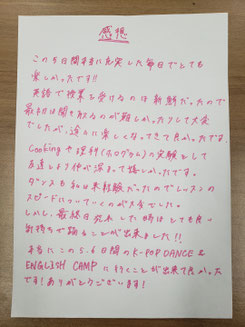 感想
この5日間本当に充実した毎日でとても
楽しかったです!!
英語で授業を受けるのは新鮮だったので
最初は聞き取るのが難しかったりして大変
でしたが、徐々に楽しくなってきて良かったです。
Cookingや理科(ホログラム)の実験をして
る途中に仲が深まって嬉しかったです。
ダンスも私は未経験だったのでレッスンの
スピードについていくのが大変でした。
しかし、最終日完成した時はとても良い
気持ちで踊ることが出来ました!!
本当にこの5.6日間のK-POP DANCE &
ENGLISH CAMPに行くことが出来て良かった
です!ありがとうございます!